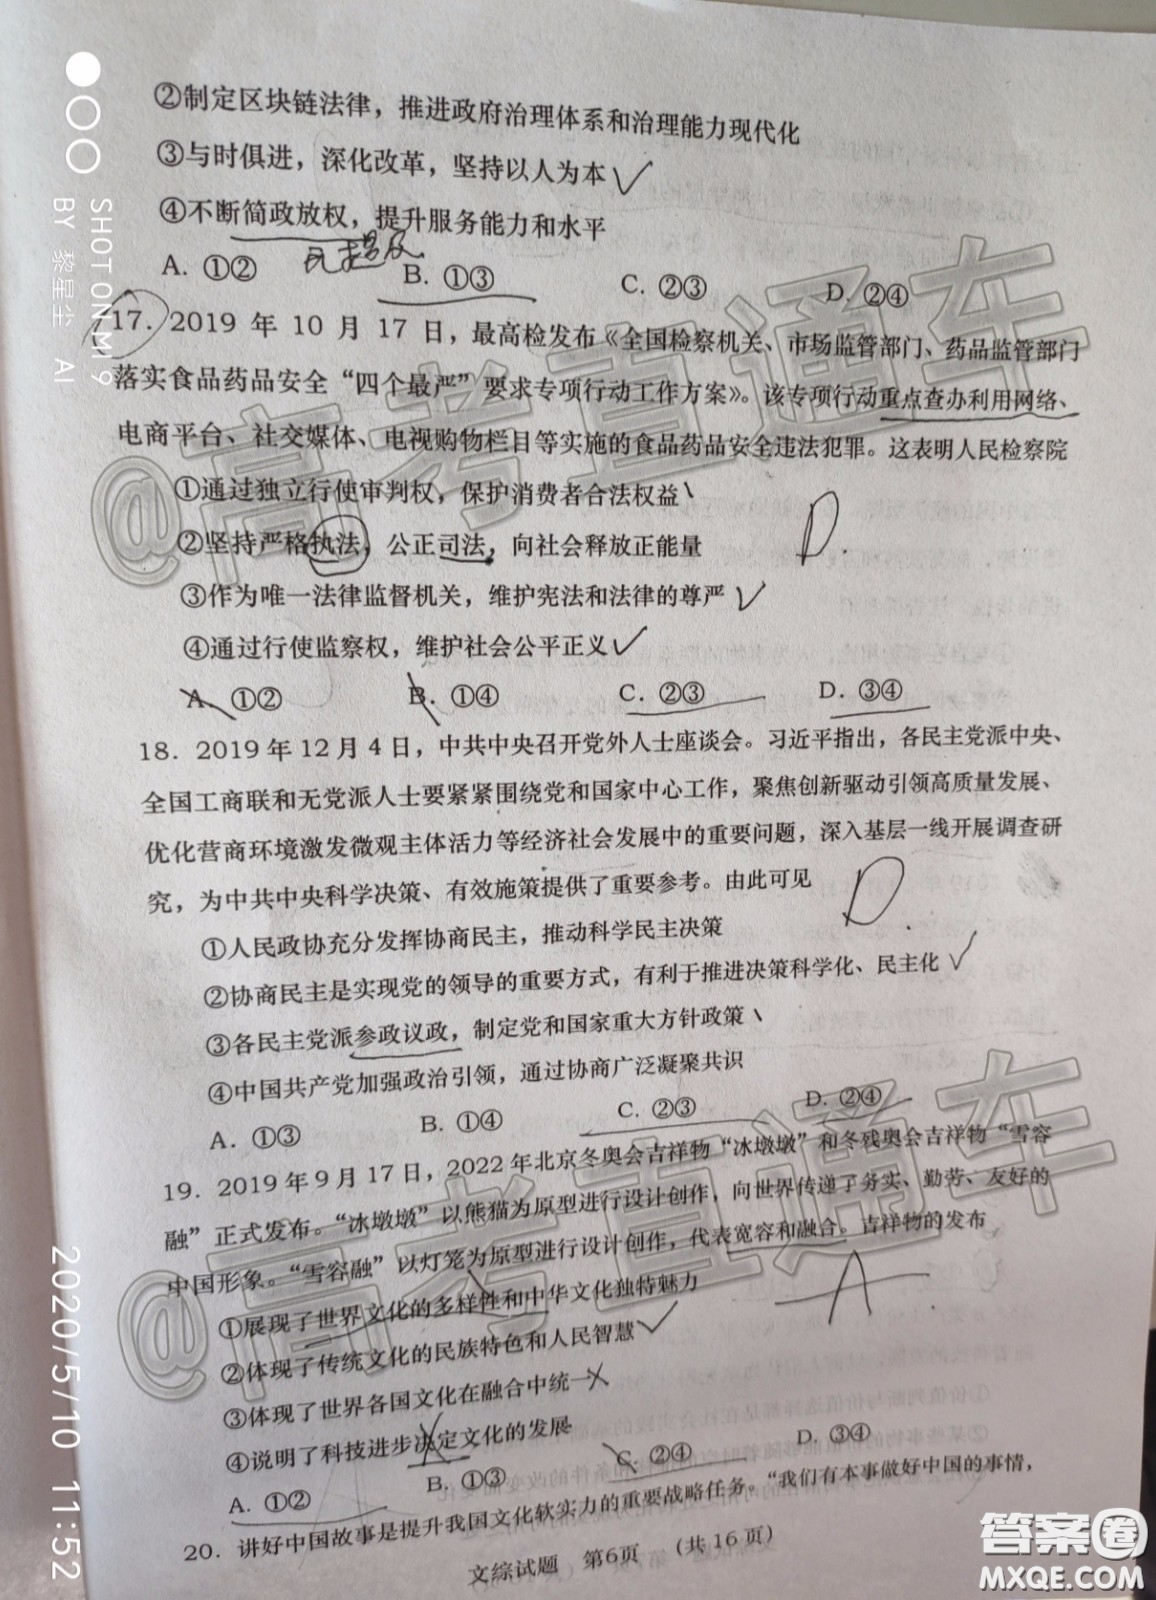 ②制定区块链法律，推进政府治理体系和治理能力现代化
③与时俱进，深化改革，坚持以人为本
④不断简政放权，提升服务能力和水平
A. ①② B. ①③ C. ②③ D. ②④
17. 2019 年 10 月 17 日，最高检发布《全国检察机关、市场监管部门、药品监管部门
落实食品药品安全“四个最严”要求专项行动工作方案》。该专项行动重点查办利用网络、
电商平台、社交媒体、电视购物栏目等实施的食品药品安全违法犯罪。这表明人民检察院
①通过独立行使审判权，保护消费者合法权益
②坚持严格执法，公正司法，向社会释放正能量
D.
③作为唯一法律监督机关，维护宪法和法律的尊严
④通过行使监察权，维护社会公平正义
A. ①② B. ①④ C. ②③ D. ③④
18. 2019 年 12 月 4 日，中共中央召开党外人士座谈会。习近平指出，各民主党派中央、
全国工商联和无党派人士要紧紧围绕党和国家中心工作，聚焦创新驱动引领高质量发展、
优化营商环境激发微观主体活力等经济社会发展中的重要问题，深入基层一线开展调查研
究，为中共中央科学决策、有效施策提供了重要参考。由此可见
D.
①人民政协充分发挥协商民主，推动科学民主决策
②协商民主是实现党的领导的重要方式，有利于推进决策科学化、民主化
③各民主党派参政议政，制定党和国家重大方针政策
④中国共产党加强政治引领，通过协商广泛凝聚共识
A. ①③ B. ①④ C. ②③ D. ②④
19. 2019 年 9 月 17 日，2022 年北京冬奥会吉祥物“冰墩墩”和冬残奥会吉祥物“雪容
融”正式发布。“冰墩墩”以熊猫为原型进行设计创作，向世界传递了务实、勤劳、友好的
中国形象。“雪容融”以灯笼为原型进行设计创作，代表宽容和融合。吉祥物的发布
A
①展现了世界文化的多样性和中华文化独特魅力
②体现了传统文化的民族特色和人民智慧
③体现了世界各国文化在融合中统一
④说明了科技进步决定文化的发展
A. ①② B. ①③ C. ②④ D. ③④
20. 讲好中国故事是提升我国文化软实力的重要战略任务。“我们有本事做好中国的事情，
文综试题 第6页 （共 16 页）
@高考直通车
@高考直通车
SHOT ON MI 9
BY 黎星尘 AI
2020/5/10 11:52
答案圈
MXQE.COM